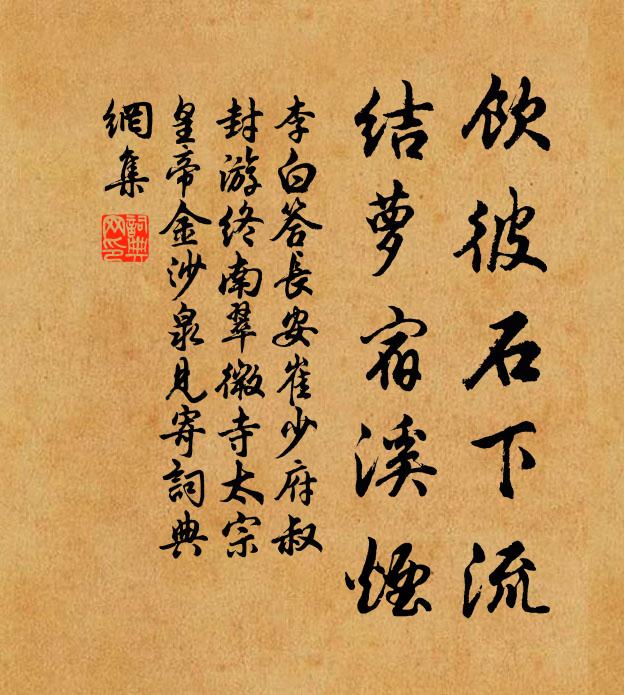 飲彼石下流
結蘿宿溪煙
李白答長安崔少府叔
封游終南翠微寺太宗
皇帝金沙泉見寄詞典
網集
詞典
网印